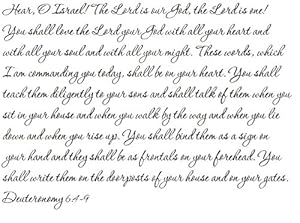 Hear, O Israel! The Lord is our God, the Lord is one!
You shall love the Lord your God with all your heart and
with all your soul and with all your might. These words, which
I am commanding you today, shall be on your heart. You shall
teach them diligently to your sons and shall talk of them when you
sit in your house and when you walk by the way and when you lie
down and when you rise up. You shall bind them as a sign on
your hand and they shall be as frontals on your forehead. You
shall write them on the doorposts of your house and on your gates.
Deuteronomy 6:4-9